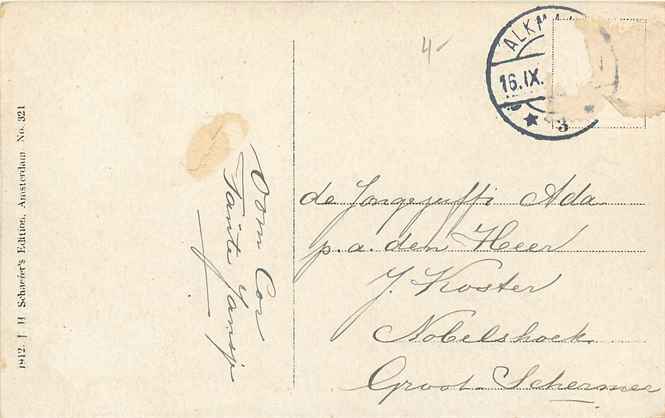 4
ALKM
16.IX.
3
1912. J. H. Schaefer's Edition, Amsterdam No. 321
Oom Cor
Tante Jansje
de Jongejuffr Ada
p. a. den Heer
J. Koster
Nobelshoek
Groot-Schermer